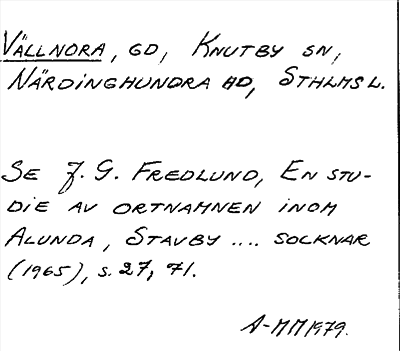 VÄLLNORA, GD, KNUTBY SN,
NÄRDINGHUNDRA HD, STHLMS L.
SE J. G. FREDLUND, EN STU-
DIE AV ORTNAMNEN INOM
ALUNDA, STAVBY .... SOCKNAR
(1965), S. 27, 71.
A-MM 1979.